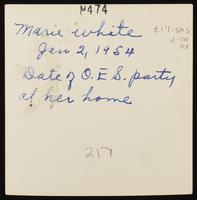 M474
Marie White
Jan 2, 1954
Date of O.E.S. party
at her home
217